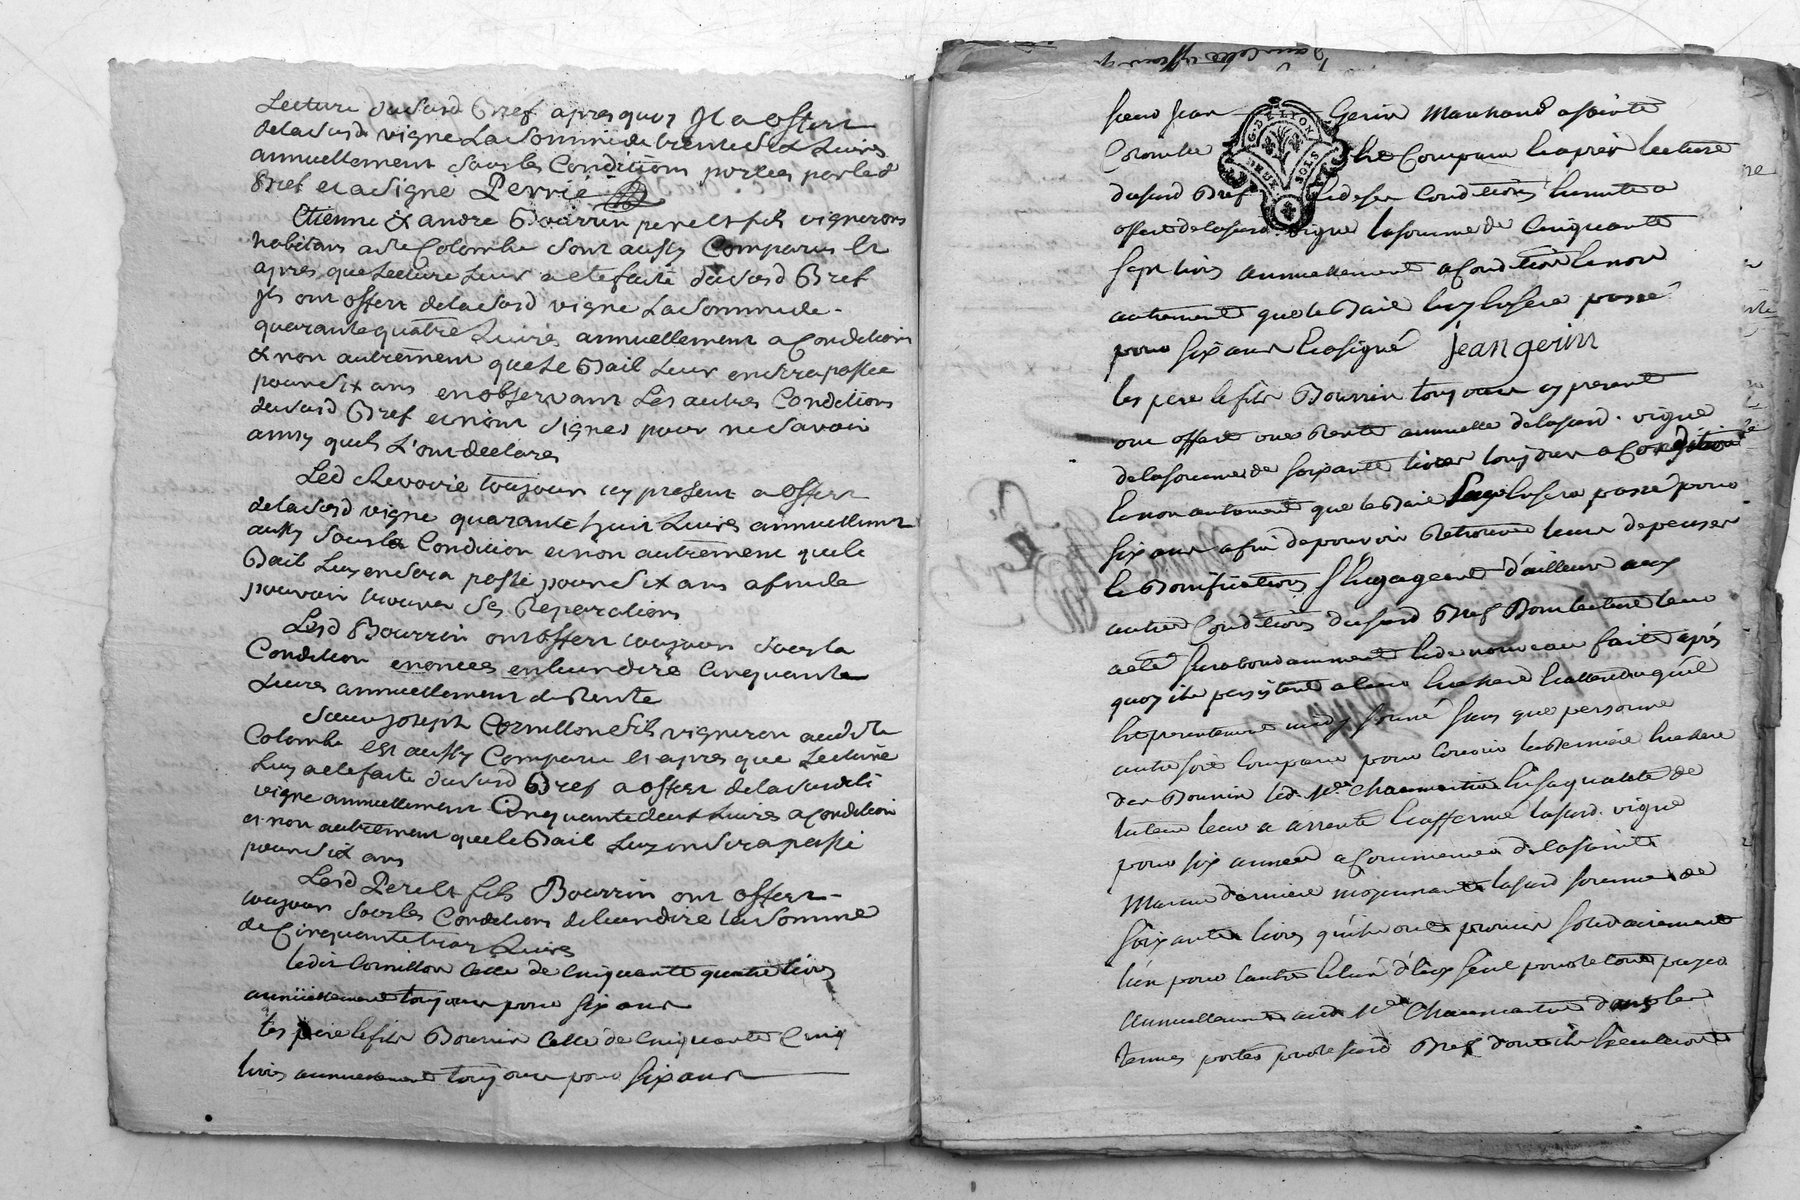 Lecture dususd Bref apres quoy Jl a offert
delasusd vigne La Somme de trente Six Livres
annuellement Sous les Conditions portées par led
Bref et a Signé Perrié
Etienne & andre Bourrin pere et fils vignerons
habitans a Ste Colombe Sont aussy Comparus et
apres que Lecture Leur a eté faite dusусd Bref
Jls ont offert delasusd vigne La Somme de
quarante quatre Livres annuellement a Condition
& non autrement que Le Bail Leur en Sera passée
pour Six ans en observant Les autres Conditions
dususd Bref et n'ont Signes pour ne Savoir
ainsy quils L'ont declarés
Led chevovié toujours icy present a offert
delasusd vigne quarante huit Livres annuellement
aussy Sous la Condition et non autrement que le
Bail Luy en Sera passé pour Six ans afin de
pouvoir trouver Ses Reparations
Lesd Bourrin ont offert toujours Sous la
Condition enoncées en leur dire Cinquante
Livres annuellement de Rente
Sieur Joseph Cornillon fils vigneron aud Ste
Colombe est aussy Comparu et apres que Lecture
Luy a eté faite dususd Bref a offert delasusdite
vigne annuellement Cinquante deux Livres a Condition
et non autrement que le Bail Luy en Sera passé
pour Six ans
Lesd Pere et fils Bourrin ont offert
toujours Sous les Conditions de leur dire La Somme
de Cinquante trois Livres
ledit Cornillon Celle de Cinquante quatre livres
annuellement toujours pour Six ans
Les pere & fils Bourrin Celle de Cinquante Cinq
livres annuellement toujours pour Six ans
Sieur Jean Gerin Marchand a Sainte
Colombe
G. DE LYON
DEUX SOLS
Est Comparu & après lecture
dususd Bref & de ses Conditions Ensuite a
offert delasusd. vigne la somme de Cinquante
Sept livres annuellement a Condition & non
autrement que le Bail luy En sera passé
pour Six ans & a signé jean gerin
les pere & fils Bourrin toujours cy present
ont offert une Rente annuelle delasusd. vigne
de la somme de soixante livres toujours a Condition
& non autrement que le Bail Leur En sera passé pour
Six ans afin de pouvoir Retrouver leurs depenses
& Bonifications S'Engageant d'ailleurs aux
autres Conditions dususd Bref Dont lecture leur
a eté surabondamment & de nouveau faite après
quoy ils persistent a leur Enchere & attendu qu'il
Est presentement midy sonné sans que personne
autre soit Comparu pour Couvrir la derniere Enchere
des Bourrin led. Sr. Chaumartin En sa qualité de
tuteur leur a arrenté & affermé lasusd. vigne
pour six années a Commencer de la sainte
Martin derniere moyennant lasusd somme de
soixante livres qu'ils ont promis solidairement
l'un pour l'autre & l'un d'Eux seul pour le tout payer
Annuellement aud Sr. Chaumartin dans les
termes portés par le susd Bref dont ils Executeront